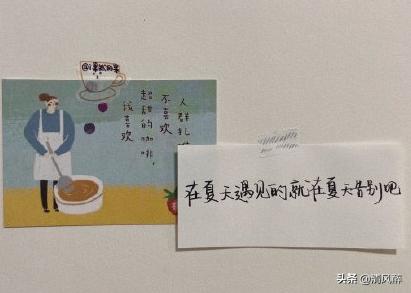 人群扎
不喜欢
超甜的咖啡，
我喜欢
在夏天遇见的就在夏天告别吧
头条 @清风醉